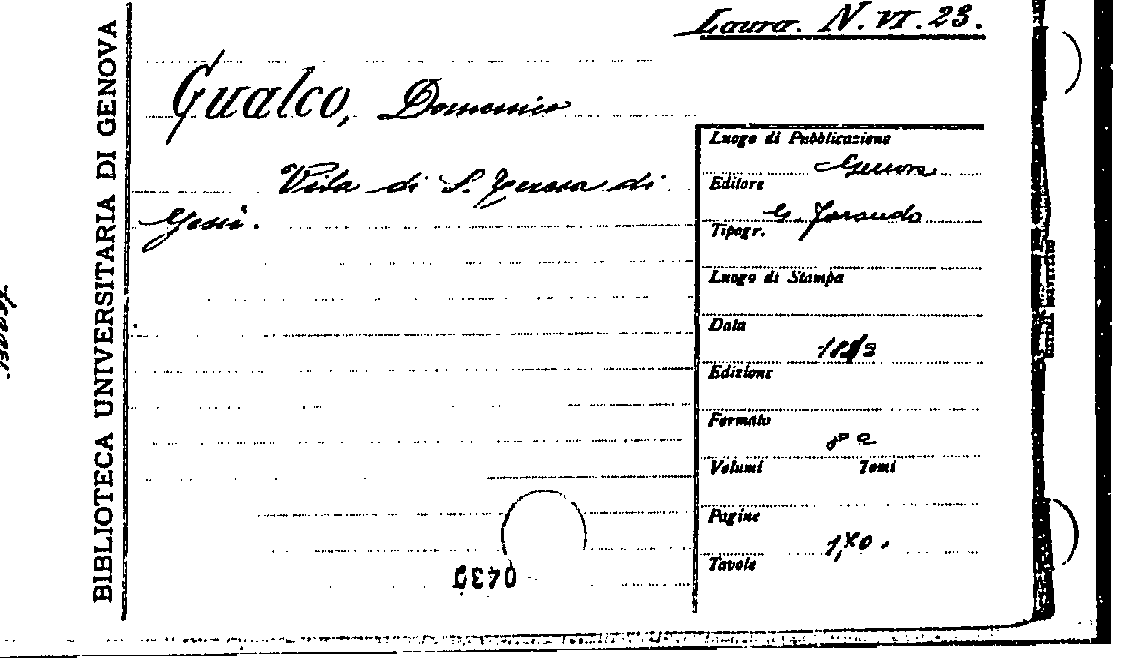 Laura. N. VI. 23.
BIBLIOTECA UNIVERSITARIA DI GENOVA
Gualco, Domenico
Vita di S. Teresa di
Gesù.
Luogo di Pubblicazione
Genova
Editore
G. Fassicomo
Tipogr.
Luogo di Stampa
Data
Edizione
Formato
8°
Volumi Tomi
Pagine
Tavole
0430